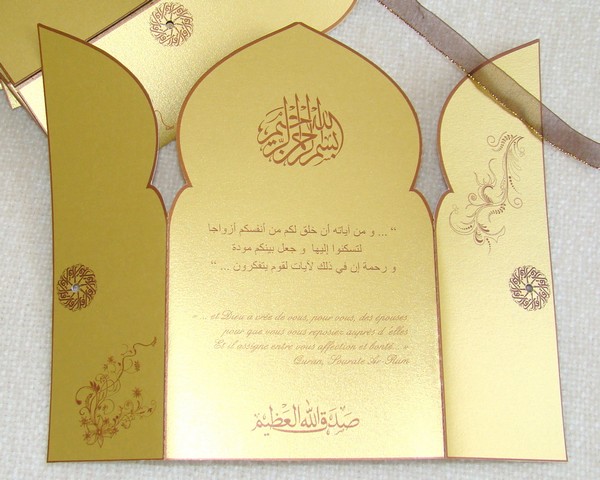 بسم الله الرحمن الرحيم
“ ... و من آياته أن خلق لكم من أنفسكم أزواجا
لتسكنوا إليها و جعل بينكم مودة
و رحمة إن في ذلك لآيات لقوم يتفكرون ... “
« ... et Dieu à crée de vous, pour vous, des épouses
pour que vous vous reposiez auprès d'elles
Et il assigne entre vous affection et bonté... »
Quran, Sourate Ar-Rum
صدق الله العظيم